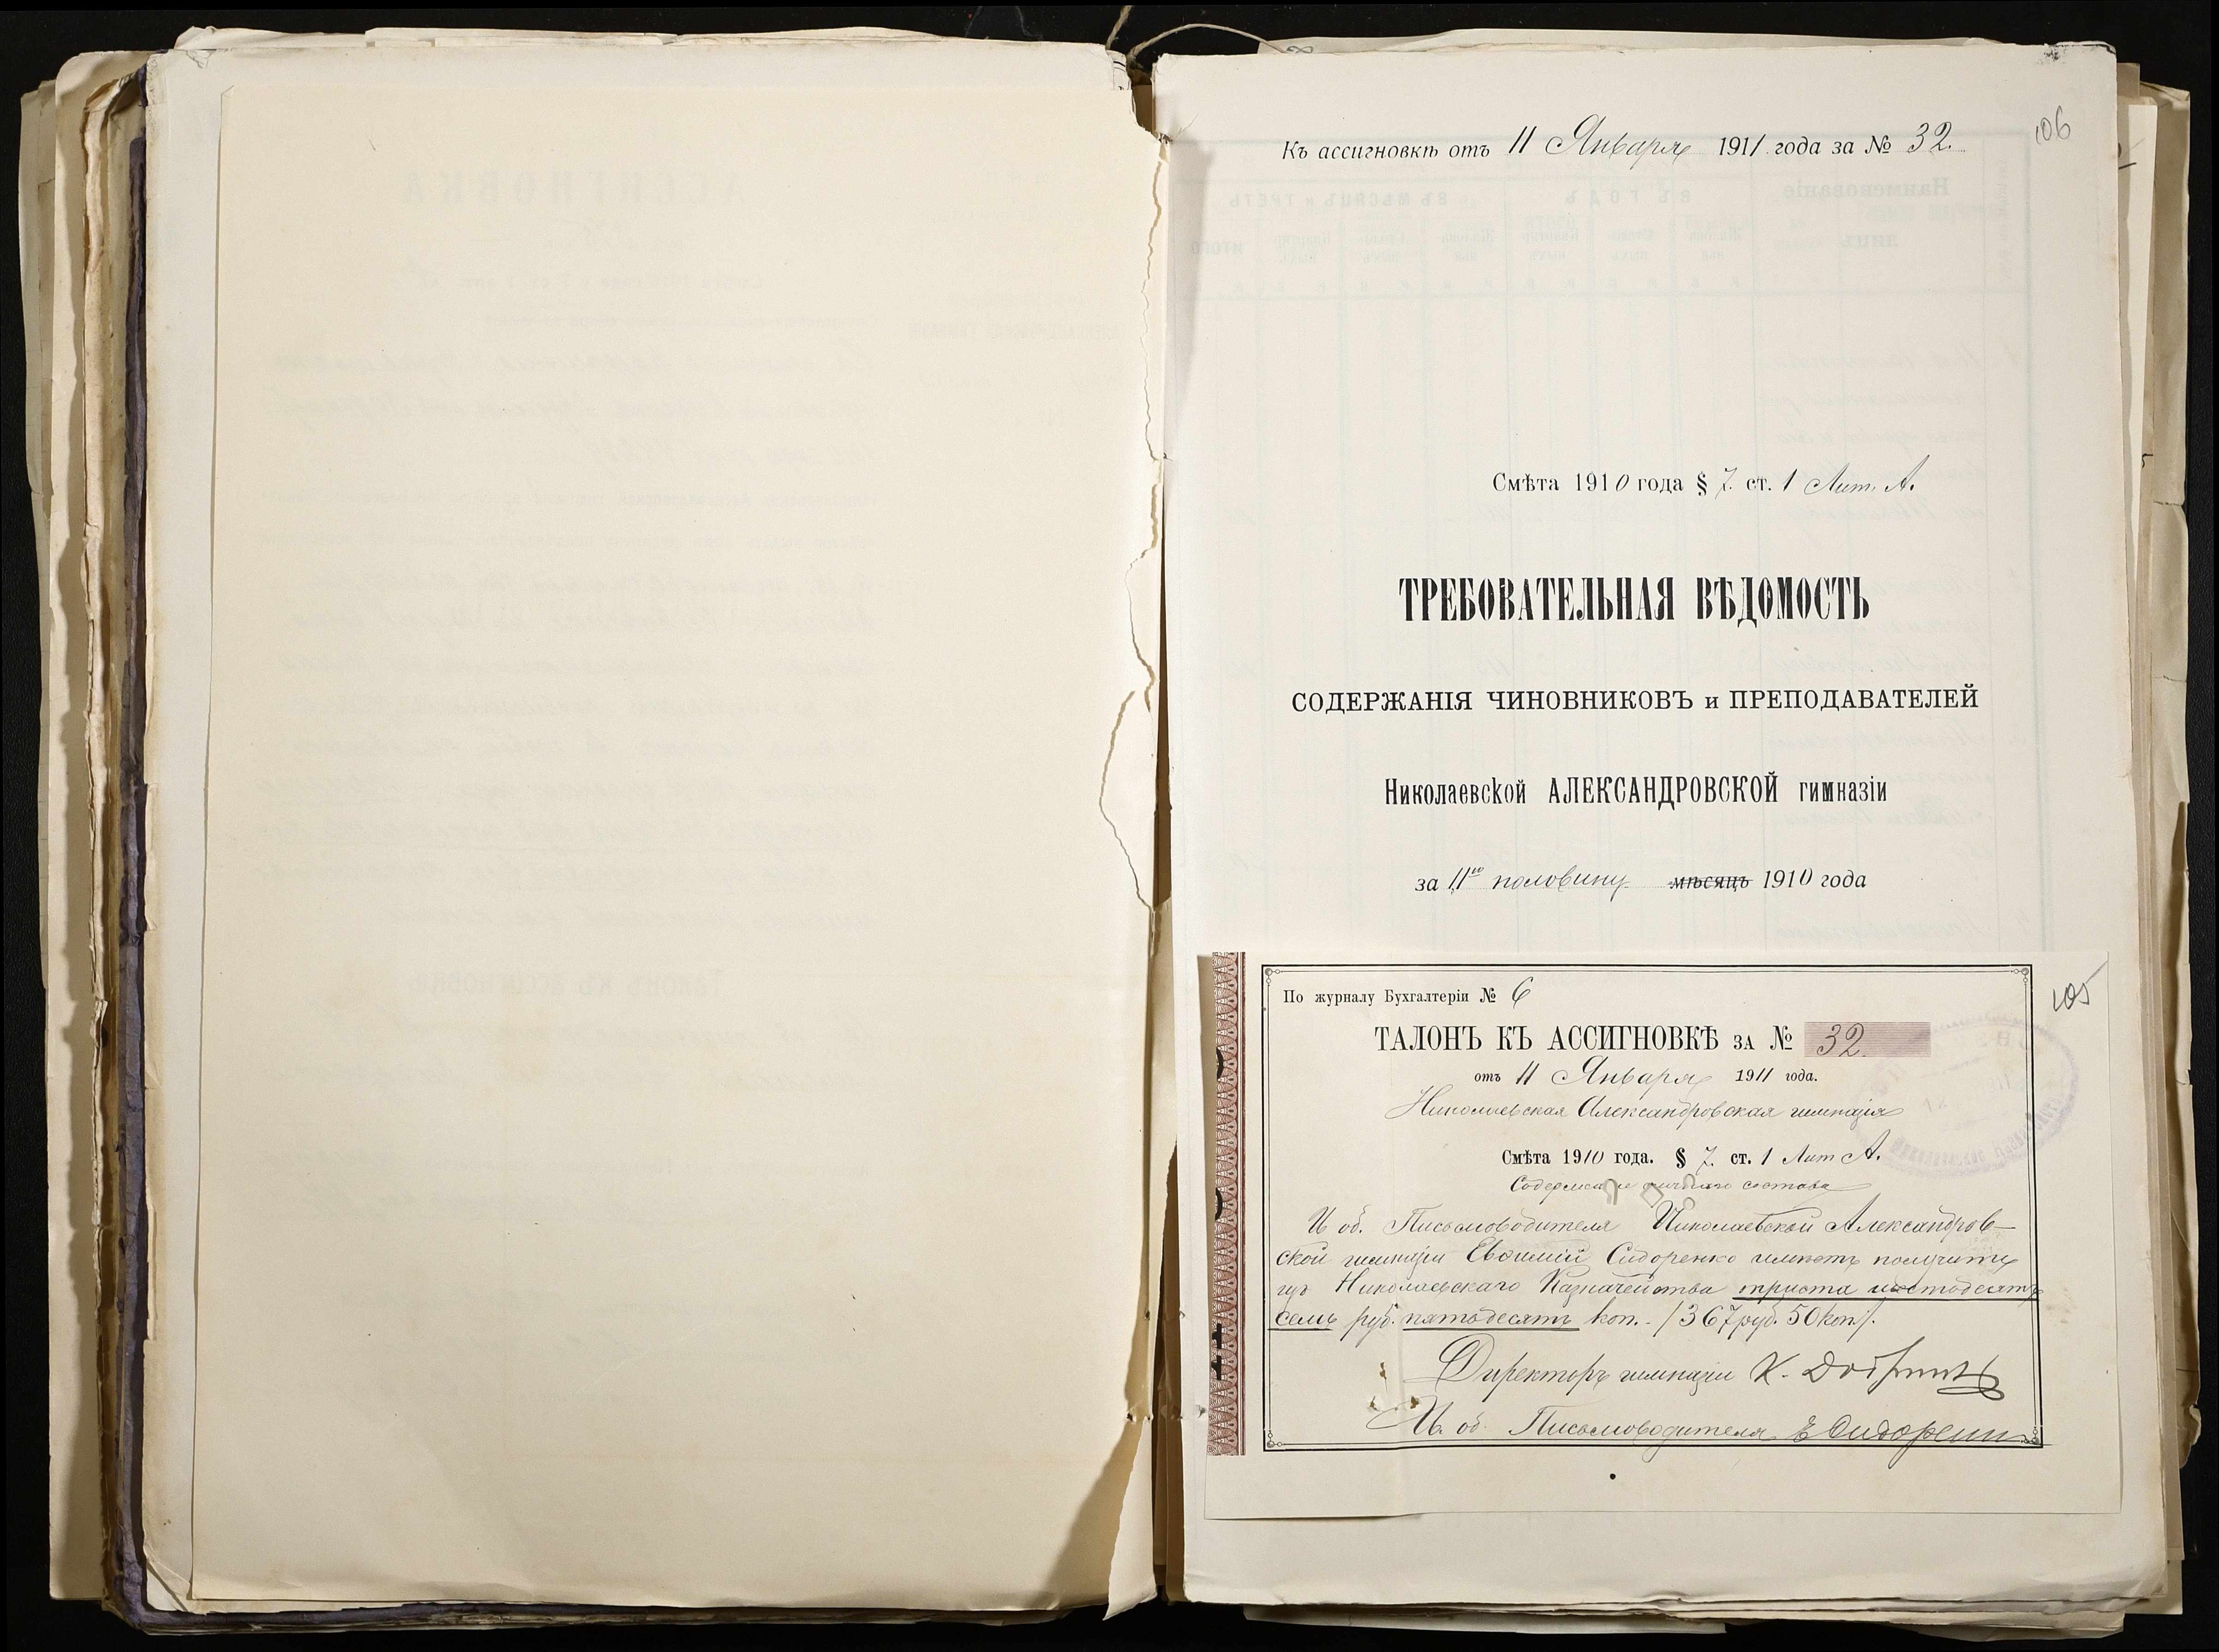 106
Къ ассигновкѣ отъ 11 Января 1911 года за № 32.
Смѣта 1910 года § 7. ст. 1 Лит. А.
ТРЕБОВАТЕЛЬНАЯ ВѢДОМОСТЬ
СОДЕРЖАНІЯ ЧИНОВНИКОВЪ и ПРЕПОДАВАТЕЛЕЙ
Николаевской АЛЕКСАНДРОВСКОЙ гимназіи
за II ую половину мѣсяцъ 1910 года
105
По журналу Бухгалтеріи № 6
ТАЛОНЪ КЪ АССИГНОВКѢ ЗА № 32.
отъ 11 Января 1911 года.
Николаевская Александровская гимназія
Смѣта 1910 года. § 7. ст. 1 Лит А.
Содержаніе личнаго состава
И об. Письмоводителя Николаевской Александров-
ской гимназіи Евѳимій Сидоренко имѣетъ получить
изъ Николаевскаго Казначейства триста шестьдесятъ
семь руб. пятьдесятъ коп. - /367 руб. 50 коп/.
Директоръ гимназіи К.
И. об. Письмоводителя Е Сидоренко